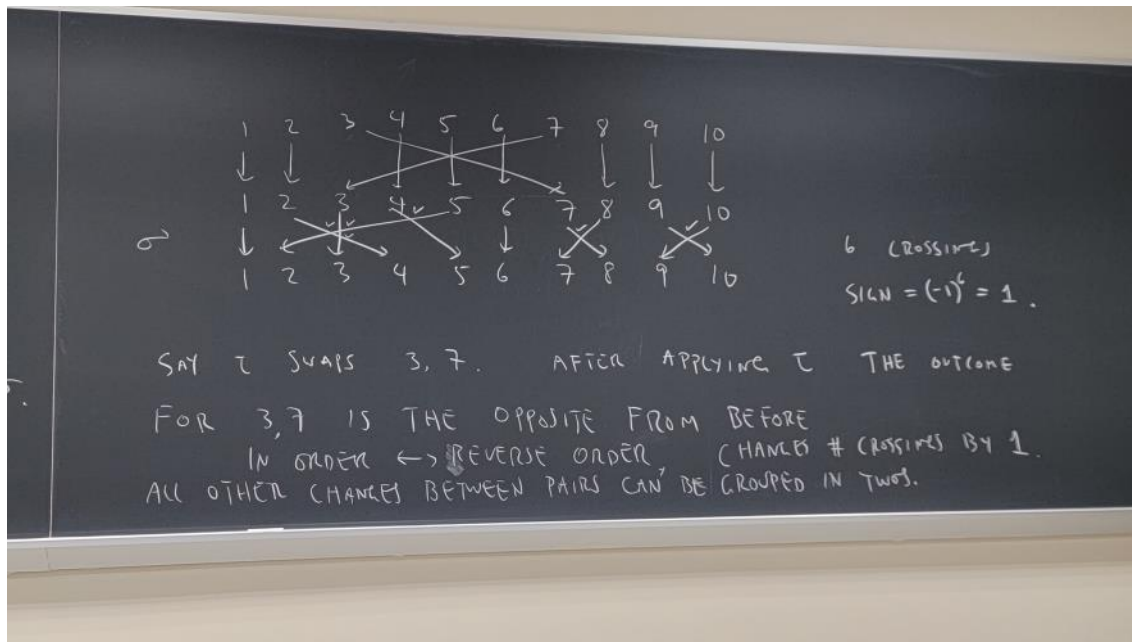 1 2 3 4 5 6 7 8 9 10
1 2 3 4 5 6 7 8 9 10
σ
1 2 3 4 5 6 7 8 9 10
6 CROSSINGS
SIGN = (-1)^6 = 1.
SAY τ SWAPS 3, 7. AFTER APPLYING τ THE OUTCOME
FOR 3,7 IS THE OPPOSITE FROM BEFORE
IN ORDER ↔ REVERSE ORDER, CHANGES # CROSSINGS BY 1.
ALL OTHER CHANGES BETWEEN PAIRS CAN BE GROUPED IN TWOS.